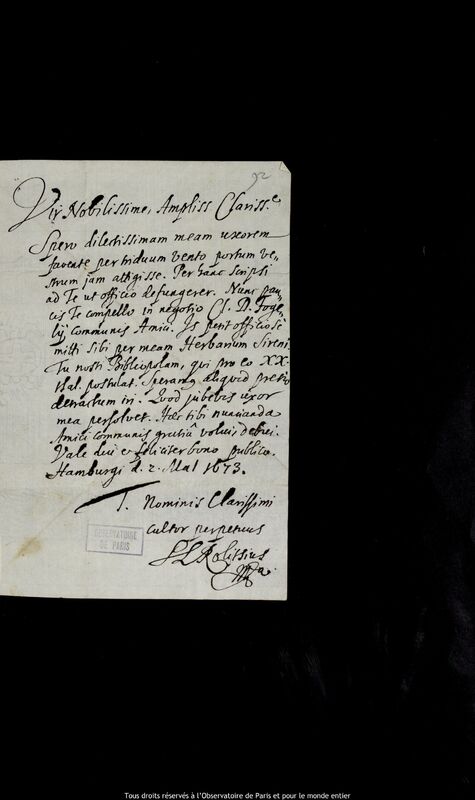 92
Vir Nobilissime, Ampliss Clariss.e
Spero dilectissimam meam uxorem
favente per triduum vento portum ve-
strum jam attigisse. Per hanc scripsi
ad Te ut officio defungerer. Nunc pau-
cis Te compello in negotio Cl. D. Foge-
lij communis Amici. Is petit officiose
mitti sibi per meam Herbarium Sireni
Tu nosti Bibliopolam, qui pro eo XX.
thal. postulat. Speramus aliquid pretio
detractum iri. Quod jubebis uxor
mea persolvet. Haec tibi nuncianda
Amici communis gratiâ volui, debui.
Vale diu et feliciter bono publico.
Hamburgi d. 2. MaI 1673.
T. Nominis Clarissimi
cultor perpetuus
OBSERVATOIRE
DE PARIS
Tous droits réservés à l'Observatoire de Paris et pour le monde entier